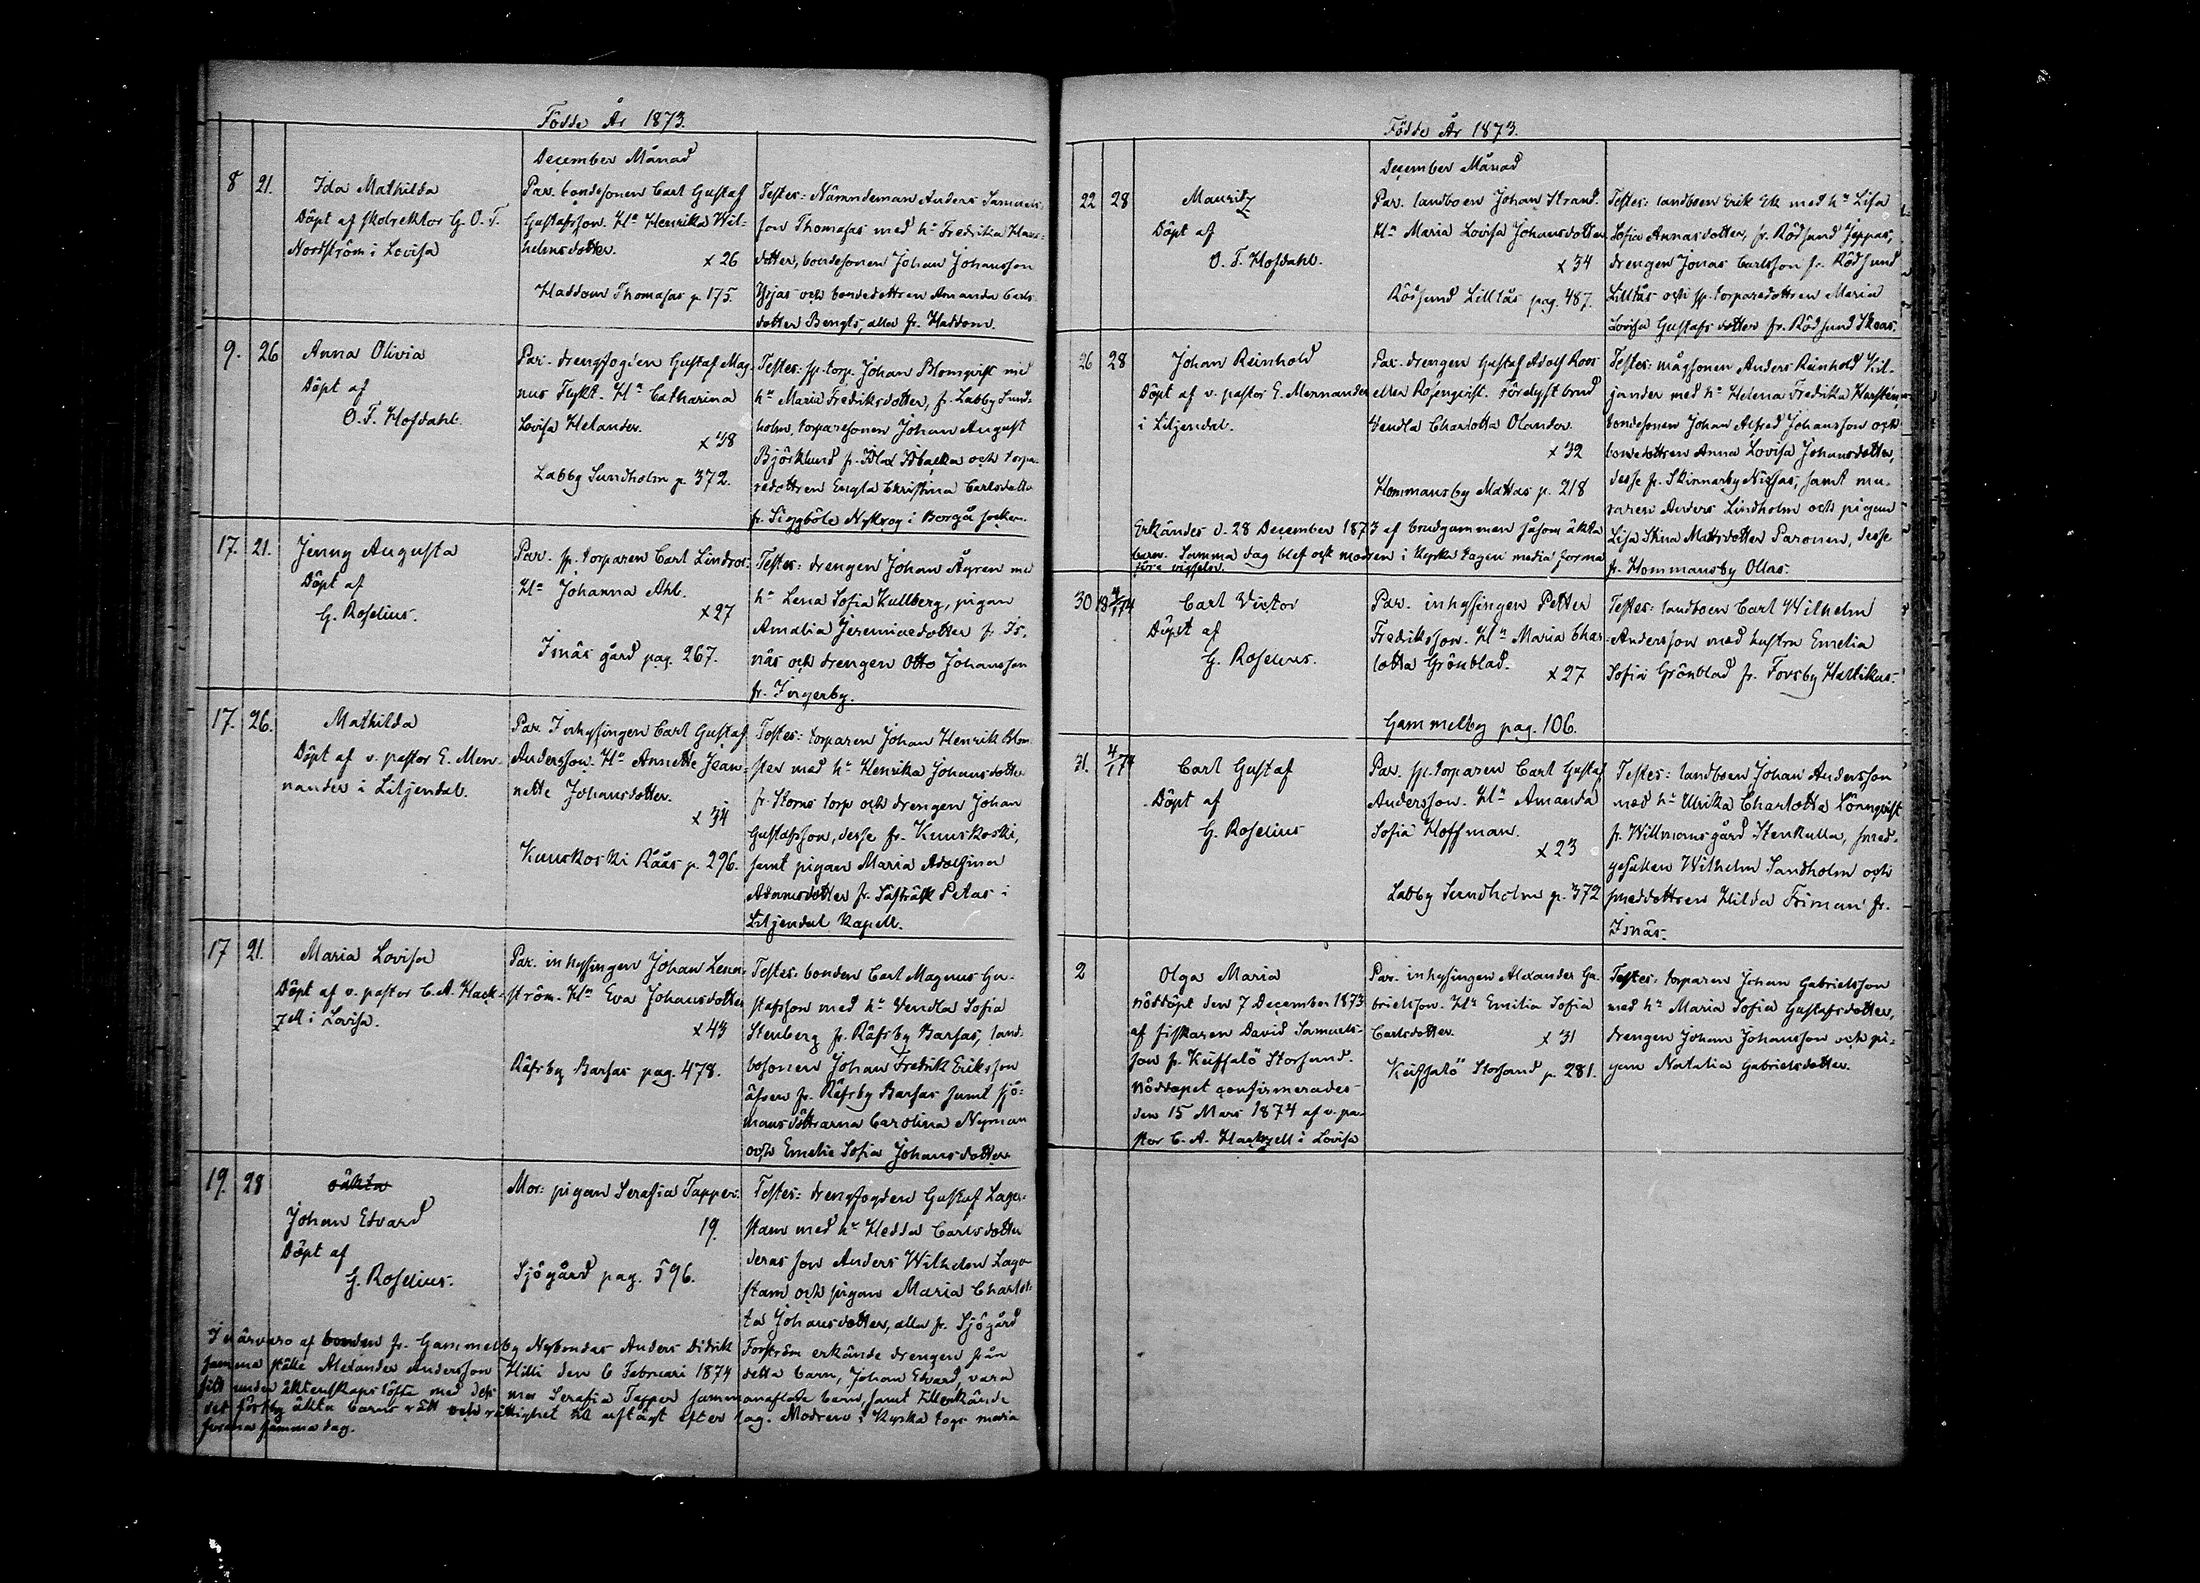 Födde År 1873.
December Månad
8 21. Ida Mathilda
Döpt af skolrektor G. O. T.
Nordström i Lovisa
Par. bondesonen Carl Gustaf
Gustafsson. H:n Henrika Wil-
helmsdotter.
x 26
Haddom Thomasas p. 175.
Testes: Nämndeman Anders Samuels-
son Thomasas med h:n Fredrika Klaus-
dotter, bondesonen Johan Johansson
och bondedottren Amanda Carls-
dotter Bengts, alla fr. Haddom.
9. 26 Anna Olivia
Döpt af
O. T. Hofdahl.
Par. drengfogden Gustaf Mag-
nus Flykt. H:n Catharina
Lovisa Helander.
x 38
Labby Sundholm p. 372.
Testes: sp. torp. Johan Blomqvist med
h:n Maria Fredriksdotter, fr. Labby Sund-
holm, torparesonen Johan August
Björklund fr. backa och torpa-
redottren Engla Christina Carlsdotter
fr. Siggböle Nykrog i Borgå socken.
17. 21. Jenny Augusta
Döpt af
G. Roselius.
Par. sp. torparen Carl Lindroos.
H:n Johanna Ahl.
x 27
Isnäs gård pag. 267.
Testes: drengen Johan Ågren med
h:n Lena Sofia Kullberg, pigan
Amalia Jeremiaedotter fr. Is-
näs och drengen Otto Johansson
fr. Ingerby.
17. 26. Mathilda
Döpt af v. pastor E. Men-
nander i Liljendal.
Par. Inhysingen Carl Gustaf
Andersson. H:n Annette Jean-
nette Johansdotter.
x 34
Kuuskoski Råås p. 296.
Testes: torparen Johan Henrik Blom-
ster med h:n Henrika Johansdotter
fr. Storns torp och drengen Johan
Gustafsson, desse fr. Kuuskoski,
samt pigan Maria Adolfina
Adamsdotter fr. Säfträsk Petas i
Liljendal Kapell.
17 21. Maria Lovisa
Döpt af v. pastor C. A. Hack-
zell i Lovisa.
Par. inhysingen Johan Lenn-
ström. H:n Eva Johansdotter
x 43
Räfsby Barsas pag. 478.
Testes: bonden Carl Magnus Gu-
stafsson med h:n Vendla Sofia
Stenberg fr. Räfsby Barsas, land-
bosonen Johan Fredrik Eriksson
äfven fr. Räfsby Barsas samt sjö-
mansdöttrarna Carolina Nyman
och Emelie Sofia Johansdotter
19. 28 oäkta
Johan Edvard
Döpt af
G. Roselius.
Mor: pigan Serafia Tapper.
19.
Sjögård pag. 596.
Testes: drengfogden Gustaf Lager-
stam med h:n Hedda Carlsdotter
deras son Anders Wilhelm Lager-
stam och pigan Maria Charlot-
ta Johansdotter, alla fr. Sjögård
I närvaro af bonden fr. Gammelby Nybondas Anders Didrik Forström erkände drengen från
samma ställe Alexander Andersson Hilli den 6 Februari 1874 detta barn, Johan Edvard, vara
sitt under äktenskapslöfte med dess mor Serafia Tapper sammanaflade barn, samt tillerkände
det äkta barns rätt och rättighet till arf lag. Modren i kyrka togs media
forma samma dag.
Födde År 1873.
December Månad
22 28 Mauritz
Döpt af
O. T. Hofdahl.
Par. landboen Johan Strand.
H:n Maria Lovisa Johansdotter
x 34
Rödsund Lilltås pag. 487.
Testes: landboen Erik Ek med h:n Lisa
Sofia Annasdotter, fr. Rödsund Jeppas,
drengen Jonas Carlsson fr. Rödsund
Lilltås och sp. torparedottren Maria
Lovisa Gustafsdotter fr. Rödsund Skoas.
26 28 Johan Reinhold
Döpt af v. pastor E. Mennander
i Liljendal.
Par. drengen Gustaf Adolf Roos
eller Rosenqvist. Förelyst brud
Vendla Charlotta Olander.
x 32
Hommansby Mattas p. 218
Testes: mågsonen Anders Reinhold Vil-
jander med h:n Helena Fredrika Karstén,
bondesonen Johan Alfred Johansson och
bondedottren Anna Lovisa Johansdotter,
desse fr. Skinnarby Nissas, samt mu-
raren Anders Lindholm och pigan
Lisa Stina Mattsdotter Paronen, desse
fr. Hommansby Ollas.
Erkändes d. 28 December 1873 af brudgummen såsom äkta
barn. Samma dag blef ock modren i kyrka tagen media forma
före vigseln.
30 18 4/1 74 Carl Victor
Döpt af
G. Roselius.
Par. inhysingen Petter
Fredriksson. H:n Maria Char-
lotta Grönblad.
x 27
Gammelby pag. 106.
Testes: landboen Carl Wilhelm
Andersson med hustru Emelia
Sofia Grönblad fr. Forsby Hallikas.
31. 4/1 74 Carl Gustaf
Döpt af
G. Roselius
Par. sp. torparen Carl Gustaf
Andersson. H:n Amanda
Sofia Hoffman.
x 23
Labby Sundholm p. 372
Testes: landboen Johan Andersson
med h:n Ulrika Charlotta Lönnqvist
fr. Willmansgård Stenkulla, smed-
gesällen Wilhelm Sandholm och
smeddottren Hilda Friman fr.
Isnäs.
2 Olga Maria
nöddöpt den 7 December 1873
af fiskaren David Samuels-
son fr. Keitsalö Storsund.
Nöddopet confirmerades
den 15 Mars 1874 af v. pa-
stor C. A. Hackzell i Lovisa
Par. inhysingen Alexander Ga-
brielsson. H:n Emilia Sofia
Carlsdotter.
x 31
Keitsalö Storsund p. 281.
Testes: torparen Johan Gabrielsson
med h:n Maria Sofia Gustafsdotter,
drengen Johan Johansson och pi-
gan Natalia Gabrielsdotter.